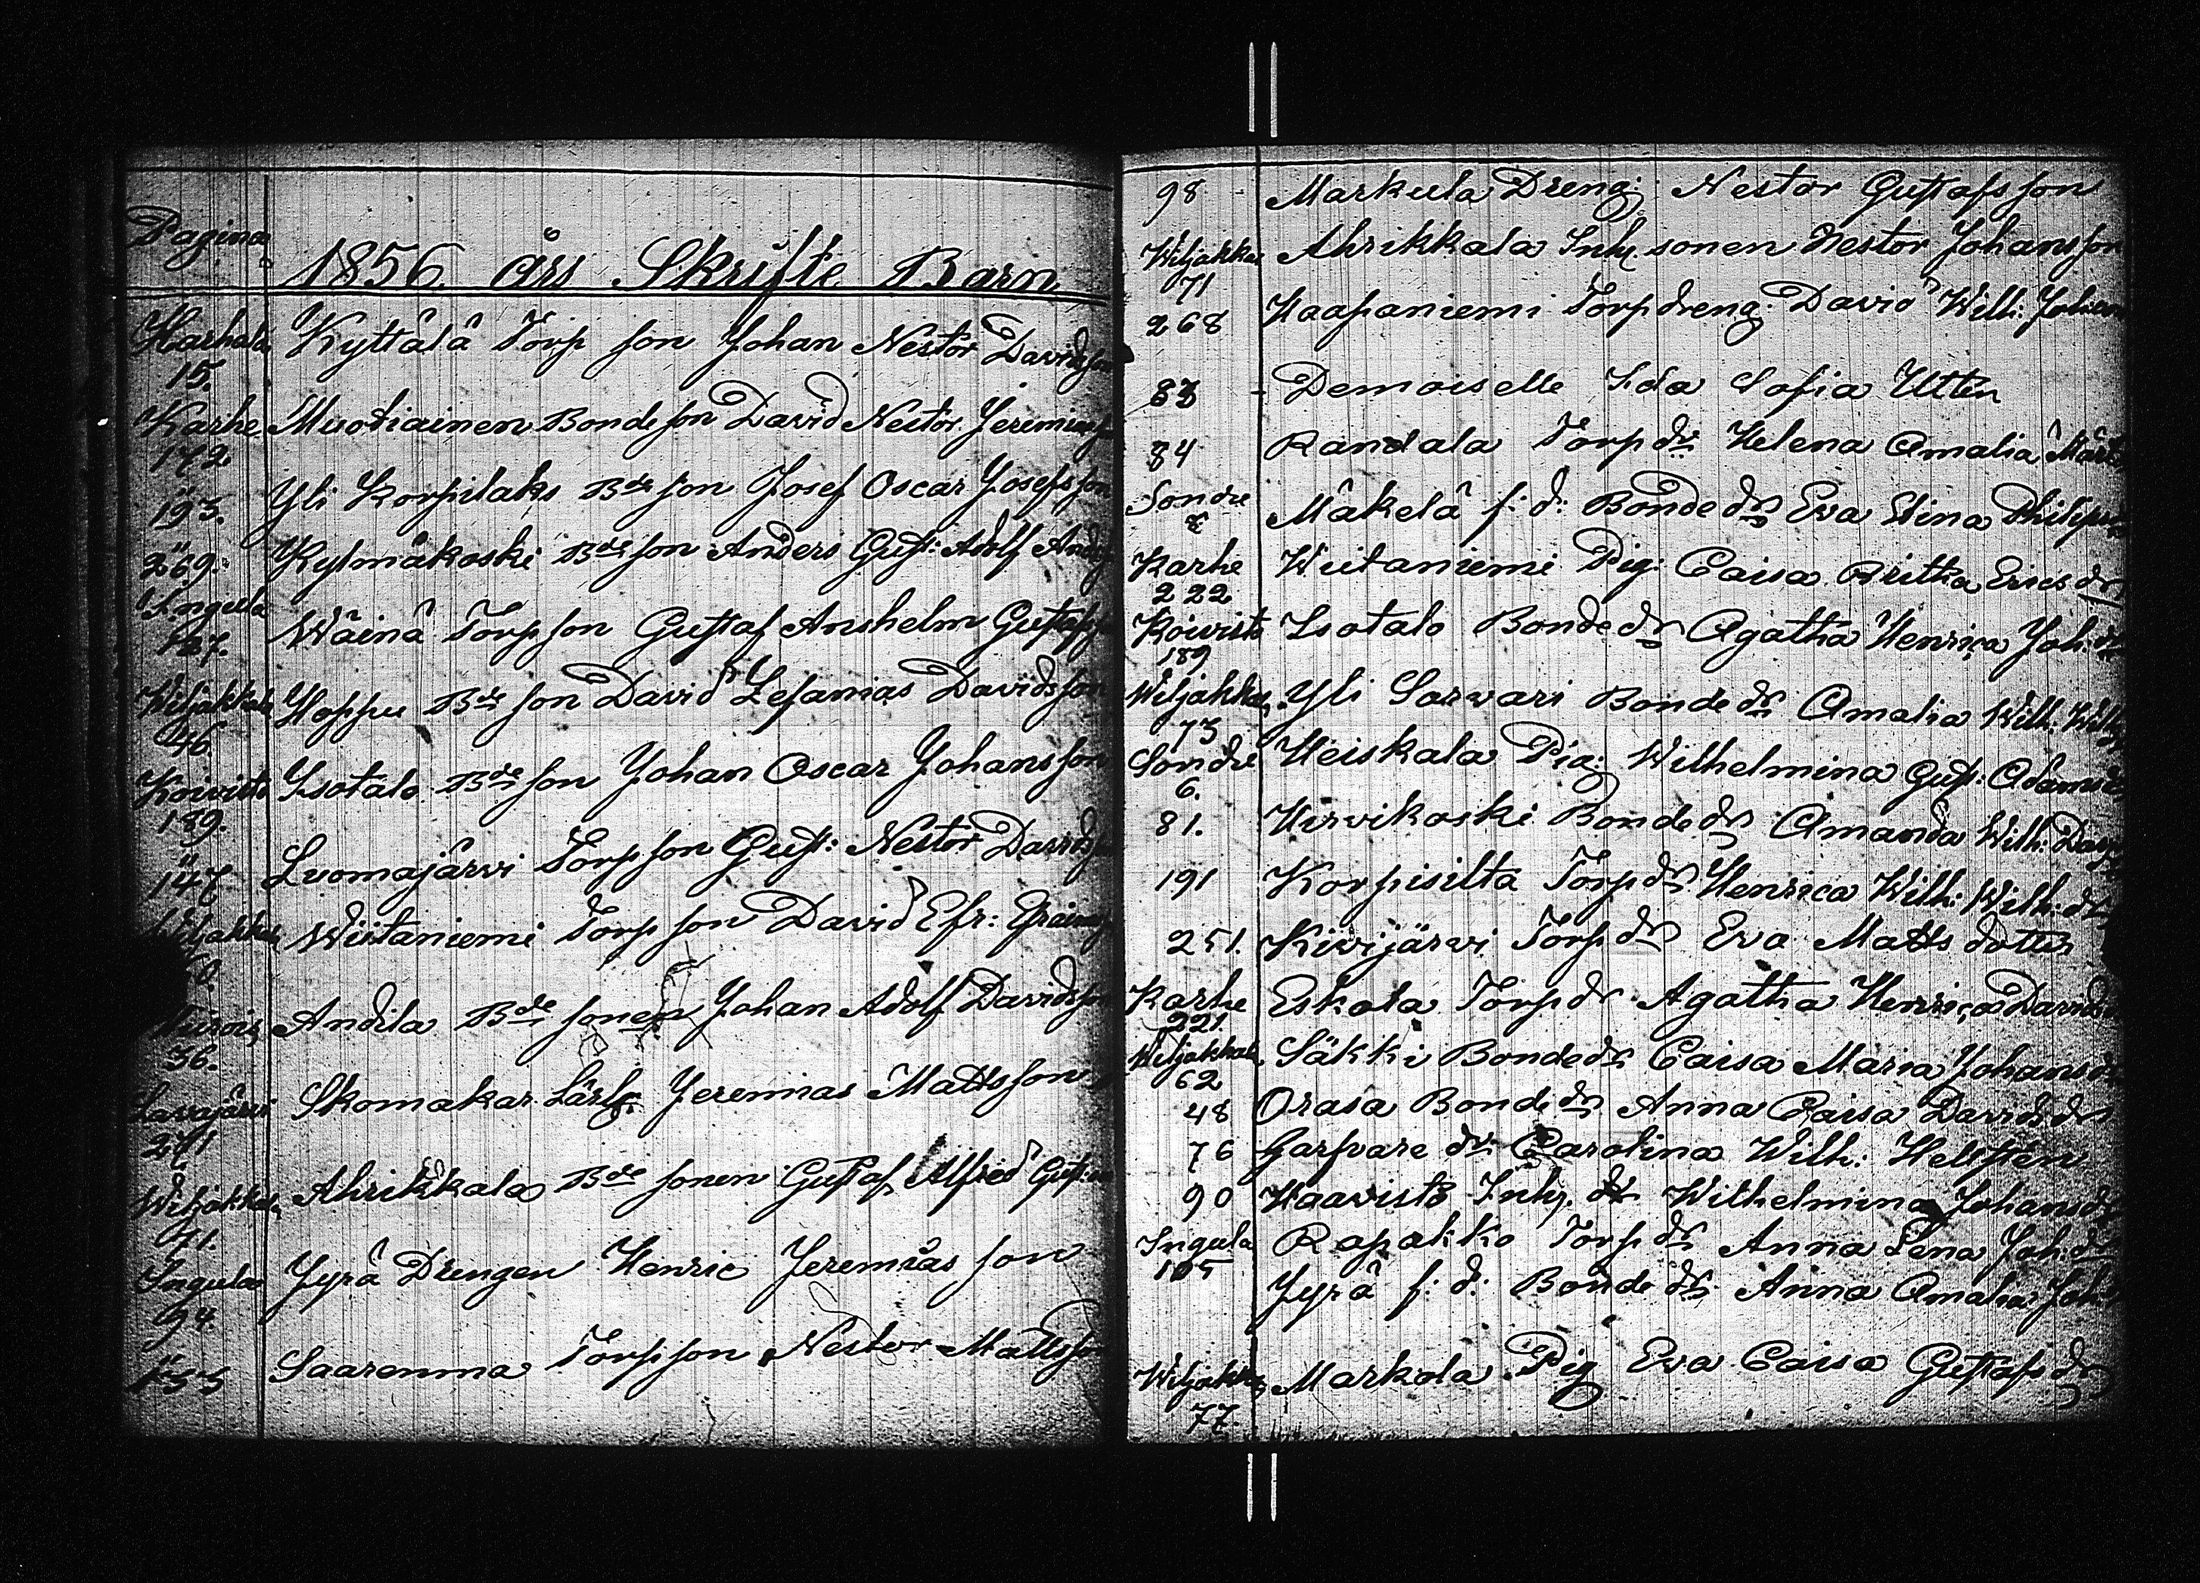 Pagina
1856 års Skrifte Barn
Karhala Kyttälä Torp son Johan Nestor Davidsson
15.
Karhe Muotiainen Bonde son David Nestor Jeremias
172
" 193. Yli Korpilaks Bde son Josef Oscar Josefsson
" 269. Kylmäkoski Bde son Anders Gust: Adolf
Ingula Wäinä Torp son Gustaf Anshelm Gustafs
127.
Wiljakkala Hoppu Bde son David Zefanias Davidsson
46.
Koivisto Isotalo Bde son Johan Oscar Johansson
189.
" 147 Luomajärvi Torp son Gust: Nestor Davids
Wiljakkala Wiitaniemi Torp son David Efr: Efraims
Andila Bde sonen Johan Adolf Davidsson
36.
Lavajärvi Skomakar Lärl: Jeremias Mattsson
271
Wiljakkala Ahrikkala Bde sonen Gustaf Alfred Gust:
71.
Ingula Jyrä Drengen Henric Jeremias son
94.
" 133 Saarenma Torp son Nestor Mattsson
98 Markula Dreng: Nestor Gustafsson
Wiljakka Ahrikkala Inh. sonen Nestor Johansson
71
268 Haapaniemi Torp dreng: David Wilh: Johan
83 - Demoiselle Ida Sofia Utter
84 Randala Torp dr Helena Amalia
Sondre Mäkelä f: d: Bonde dr Eva Stina Philips
Karhe Wiitaniemi Pig: Caisa Britha Erics dr
222
Koivisto Isotalo Bonde dr Agatha Henrica Joh: dr
189
Wiljakkala Yli Sarvari Bonde dr Amalia Wilh: Wilh
73
Sondre Heiskala Pig: Wilhelmina Gust: Adamsd
6.
81. Hirvikoski Bonde dr Amanda Wilh: Dav
191 Korpisilta Torp dr Henrica Wilh: Wilh: dr
251. Kivijärvi Torp dr Eva Matts dotter
Karhe Eskola Torp dr Agatha Henrica Davids
221.
Wiljakkala Säkki Bonde dr Caisa Maria Johans dr
62
48 Orasa Bonde dr Anna Caisa Davids dr
76 Garfvare dr Carolina Wilh: Hellsten
90 Haavisto Inh. dr Wilhelmina Johansdr
Ingula Rapakko Torp dr Anna Lena Joh: dr
105
Jyrä f: d: Bonde dr Anna Amalia Joh:
Wiljakka Markola Pig Eva Caisa Gustafs dr
77.